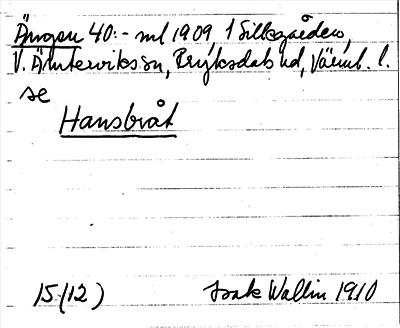 Ängen 40:- ml 1909 1 Silkegården,
V. Ämterviks sn, Fryksdals hd, Värml. l.
se
Hansbråt
15 (12) Isak Wallin 1910